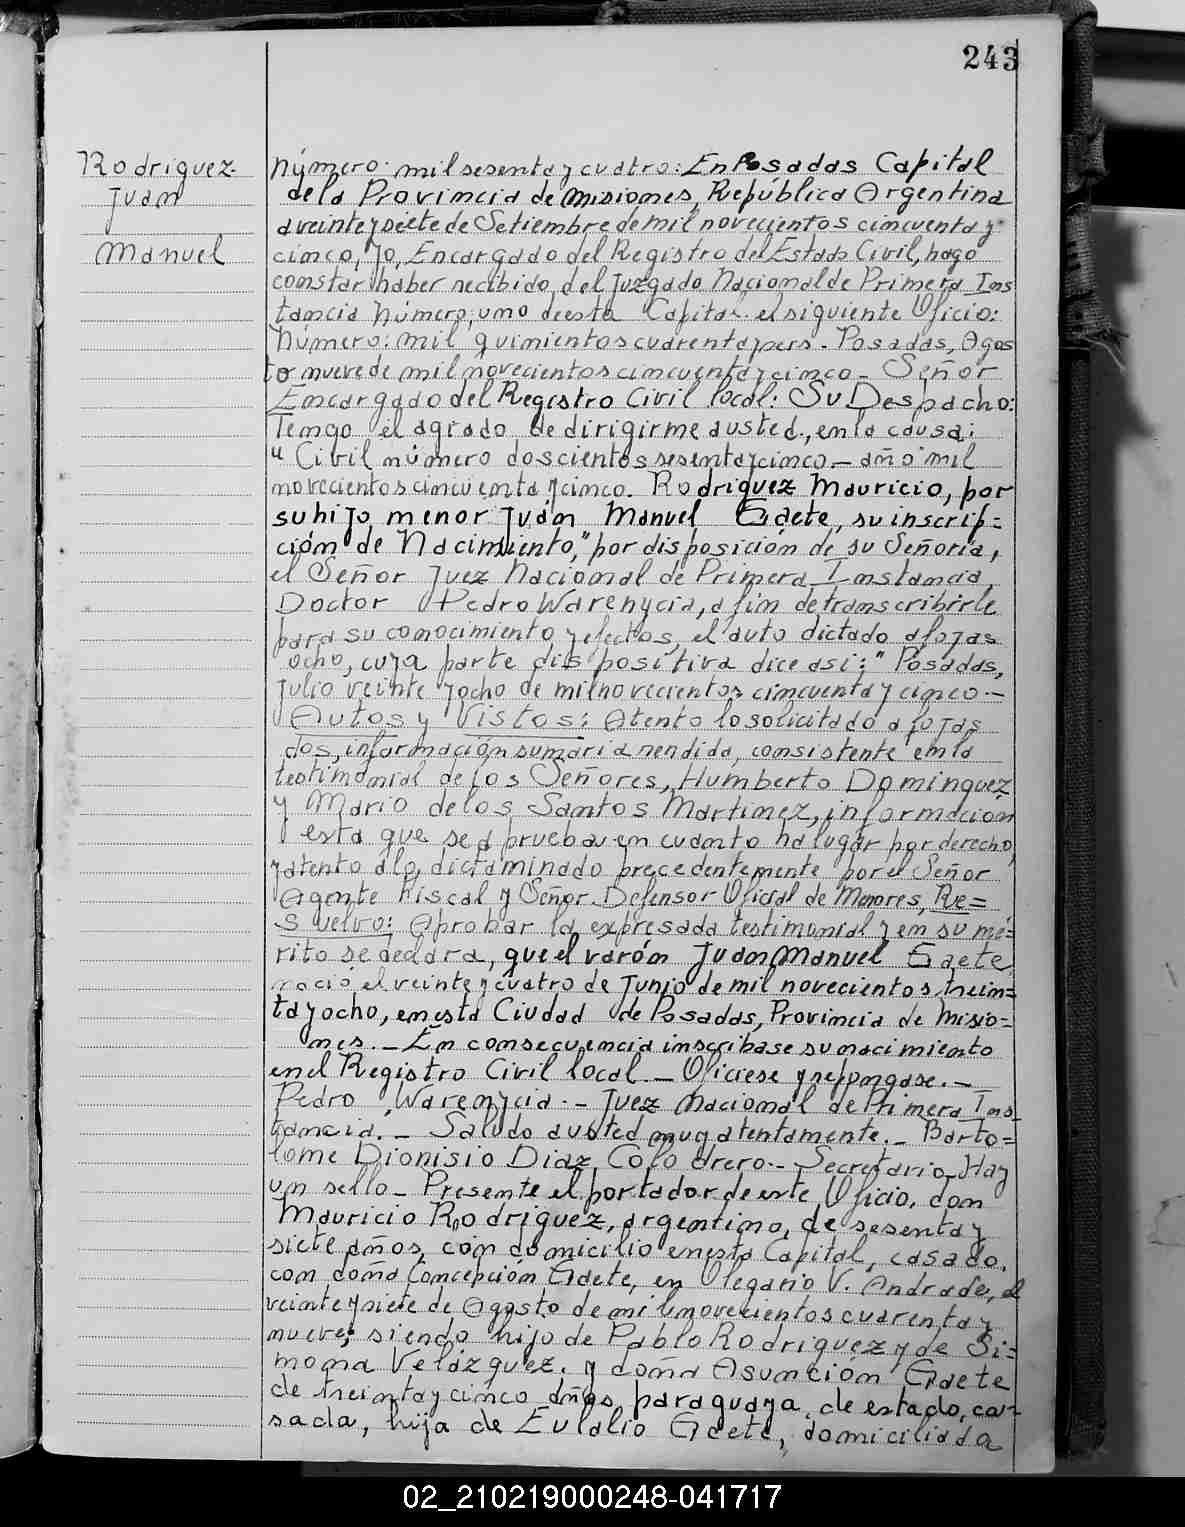 243
Rodriguez
Juan
Manuel
Número: mil sesenta y cuatro: En Posadas Capital
de la Provincia de Misiones, República Argentina
a veinte y siete de Setiembre de mil novecientos cincuenta y
cinco, Yo, Encargado del Registro del Estado Civil, hago
constar haber recibido, del Juzgado Nacional de Primera Ins
tancia Número, uno de esta Capital el siguiente Oficio:
Número: mil quinientos cuarenta y seis. Posadas, Agos
to nueve de mil novecientos cincuenta y cinco - Señor
Encargado del Registro Civil local: Su Despacho:
Tengo el agrado de dirigirme a usted, en la causa:
" Civil número doscientos sesenta y cinco - año mil
novecientos cincuenta y cinco. Rodriguez Mauricio, por
su hijo menor Juan Manuel Gaete, su inscrip=
ción de Nacimiento," por disposición de su Señoria,
el Señor Juez Nacional de Primera Instancia,
Doctor Pedro Warenycia, a fin de transcribirle
para su conocimiento y efectos, el auto dictado a fojas
ocho, cuya parte dispositiva dice asi: " Posadas,
Julio veinte y ocho de mil novecientos cincuenta y cinco -
Autos y Vistos: Atento lo solicitado a fojas
dos, información sumaria rendida, consistente en la
testimonial de los Señores, Humberto Dominguez
y Mario de los Santos Martinez, informacion
esta que se aprueba en cuanto ha lugar por derecho,
y atento a lo dictaminado precedentemente por el Señor
Agente Fiscal y Señor Defensor Oficial de Menores, Re=
suelvo: Aprobar la expresada testimonial y en su mé=
rito se declara, que el varón Juan Manuel Gaete,
nació el veinte y cuatro de Junio de mil novecientos, trein=
ta y ocho, en esta Ciudad de Posadas, Provincia de Misio=
nes. - En consecuencia inscribase su nacimiento
en el Registro Civil local. - Oficiese y repongase. -
Pedro Warenycia. - Juez Nacional de Primera Ins
tancia. - Saludo a usted muy atentamente. - Barto=
lome Dionisio Diaz Colodrero. - Secretario - Hay
un sello - Presente el portador de este Oficio, don
Mauricio Rodriguez, argentino, de sesenta y
siete años, con domicilio en esta Capital, casado,
con doña Concepción Gaete, en Olegario V. Andrade, el
veinte y siete de Agosto de mil novecientos cuarenta y
nueve, siendo hijo de Pablo Rodriguez y de Si=
mona Velázquez. y doña Asunción Gaete
de treinta y cinco años, paraguaya, de estado, ca-
sada, hija de Eulalio Gaete, domiciliada
02_210219000248-041717